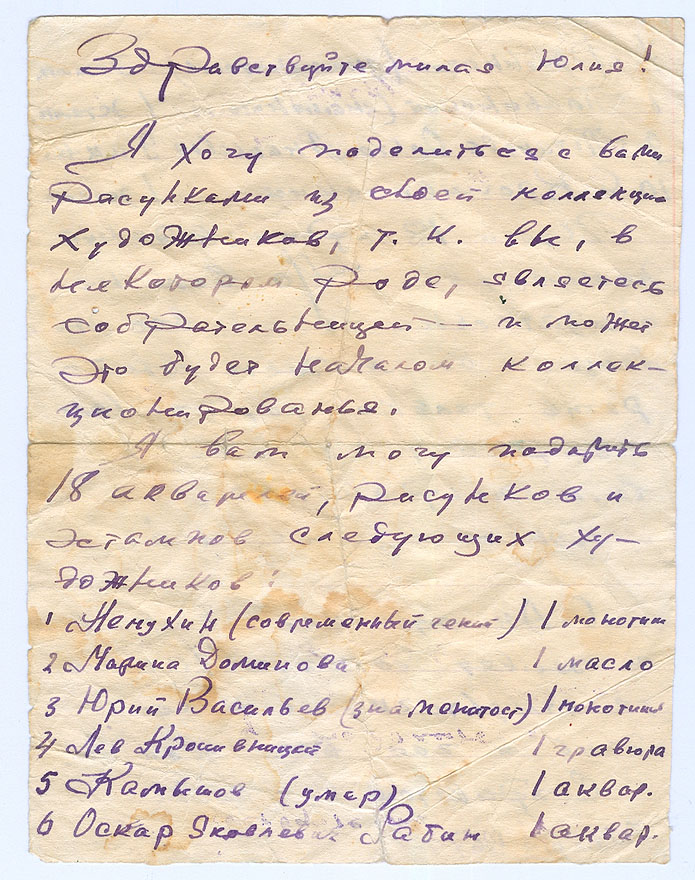 Здравствуйте милая Юлия!
Я хочу поделиться с вами
рисунками из своей коллекции
художников, т. к. вы, в
некотором роде, являетесь
собрательницей — и может
это будет началом коллек-
ционированья.
Я вам могу подарить
18 акварелей, рисунков и
эстампов следующих ху-
дожников:
1 Ненухин (современный гений) 1 монотип
2 Марина Доминова 1 масло
3 Юрий Васильев (знаменитост) 1 монотипия
4 Лев Кропивницкий 1 гравюра
5 Камышов (умер) 1 аквар.
6 Оскар Яковлевич Рабин 1 аквар.